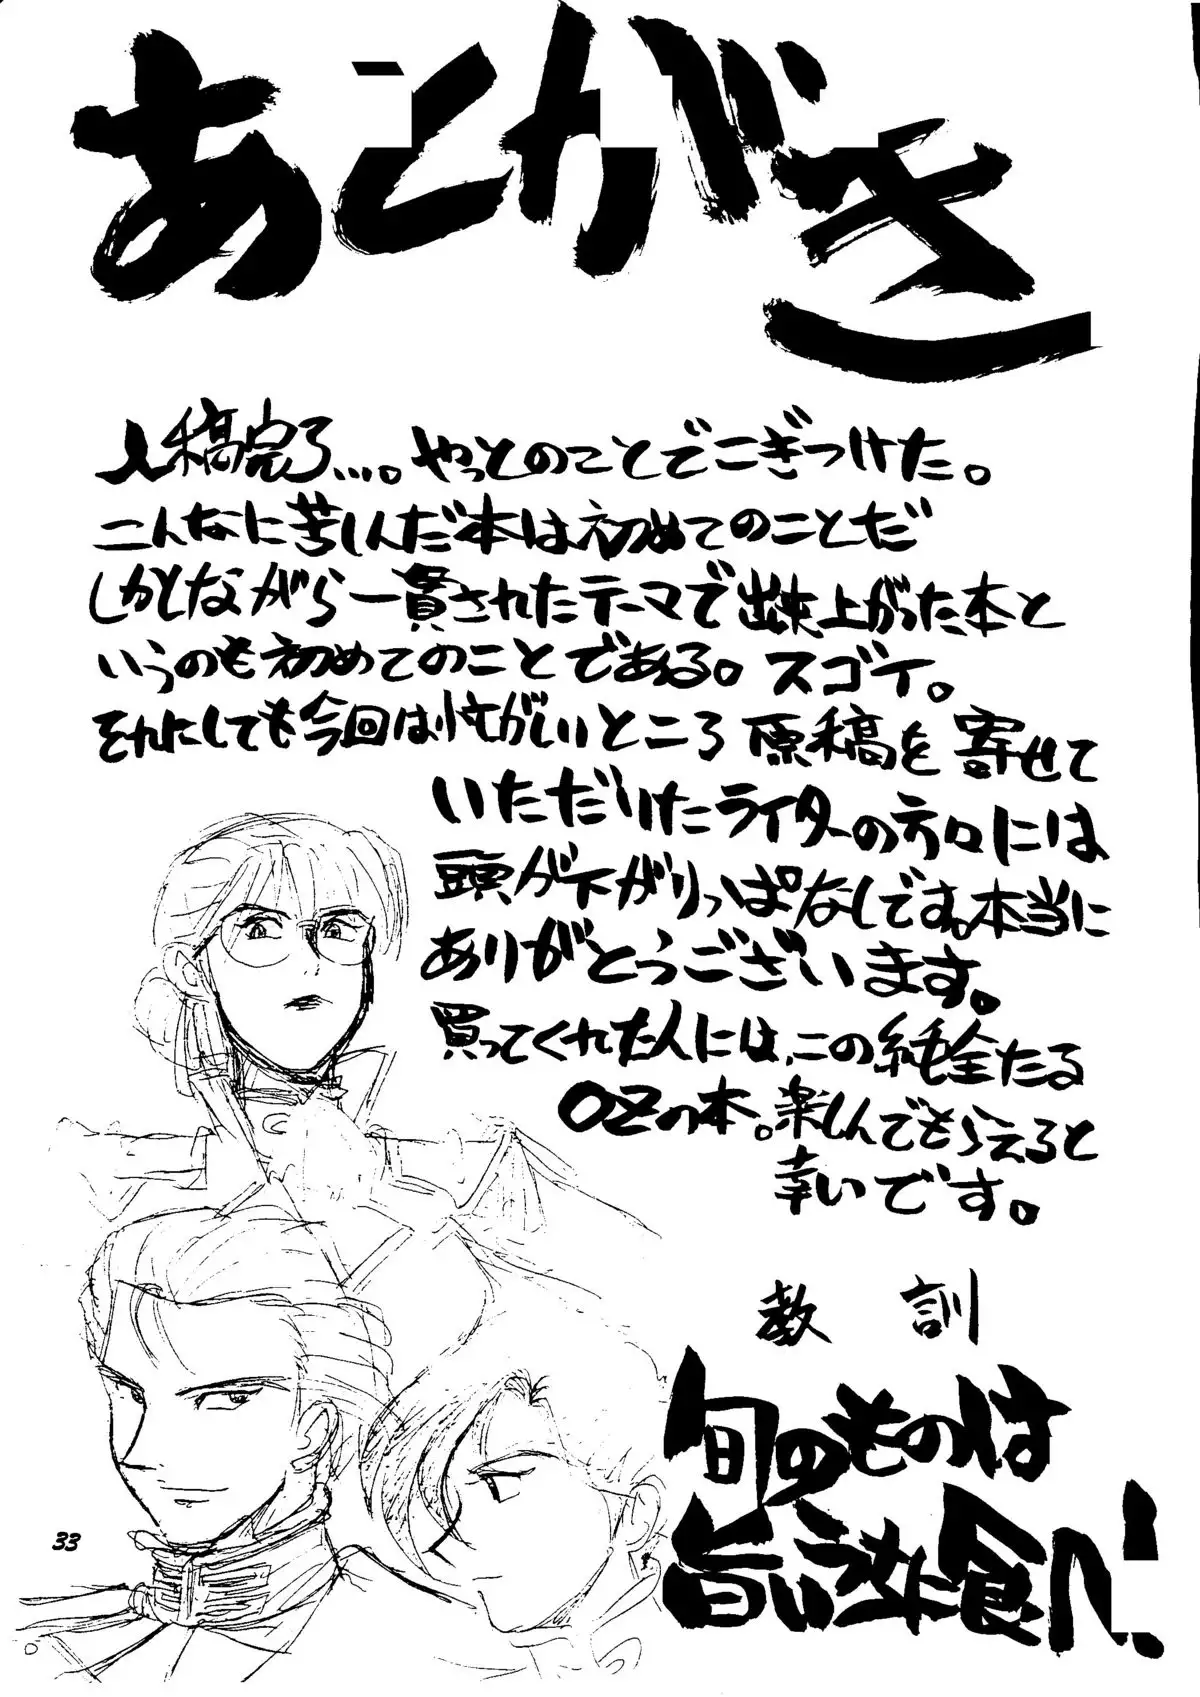 あとがき
入稿完了…。やっとのことでこぎつけた。
こんなに苦しんだ本は初めてのことだ
しかとながら一貫されたテーマで出来上がった本と
いうのも初めてのことである。スゴイ。
それにしても今回は忙がしいところ原稿を寄せて
いただいたライターの方々には
頭が下がりっぱなしです。本当に
ありがとうございます。
買ってくれた人には、この純全たる
OZの本。楽しんでもらえると
幸いです。
教訓
旬のものは
旨いうちに食べ!
33